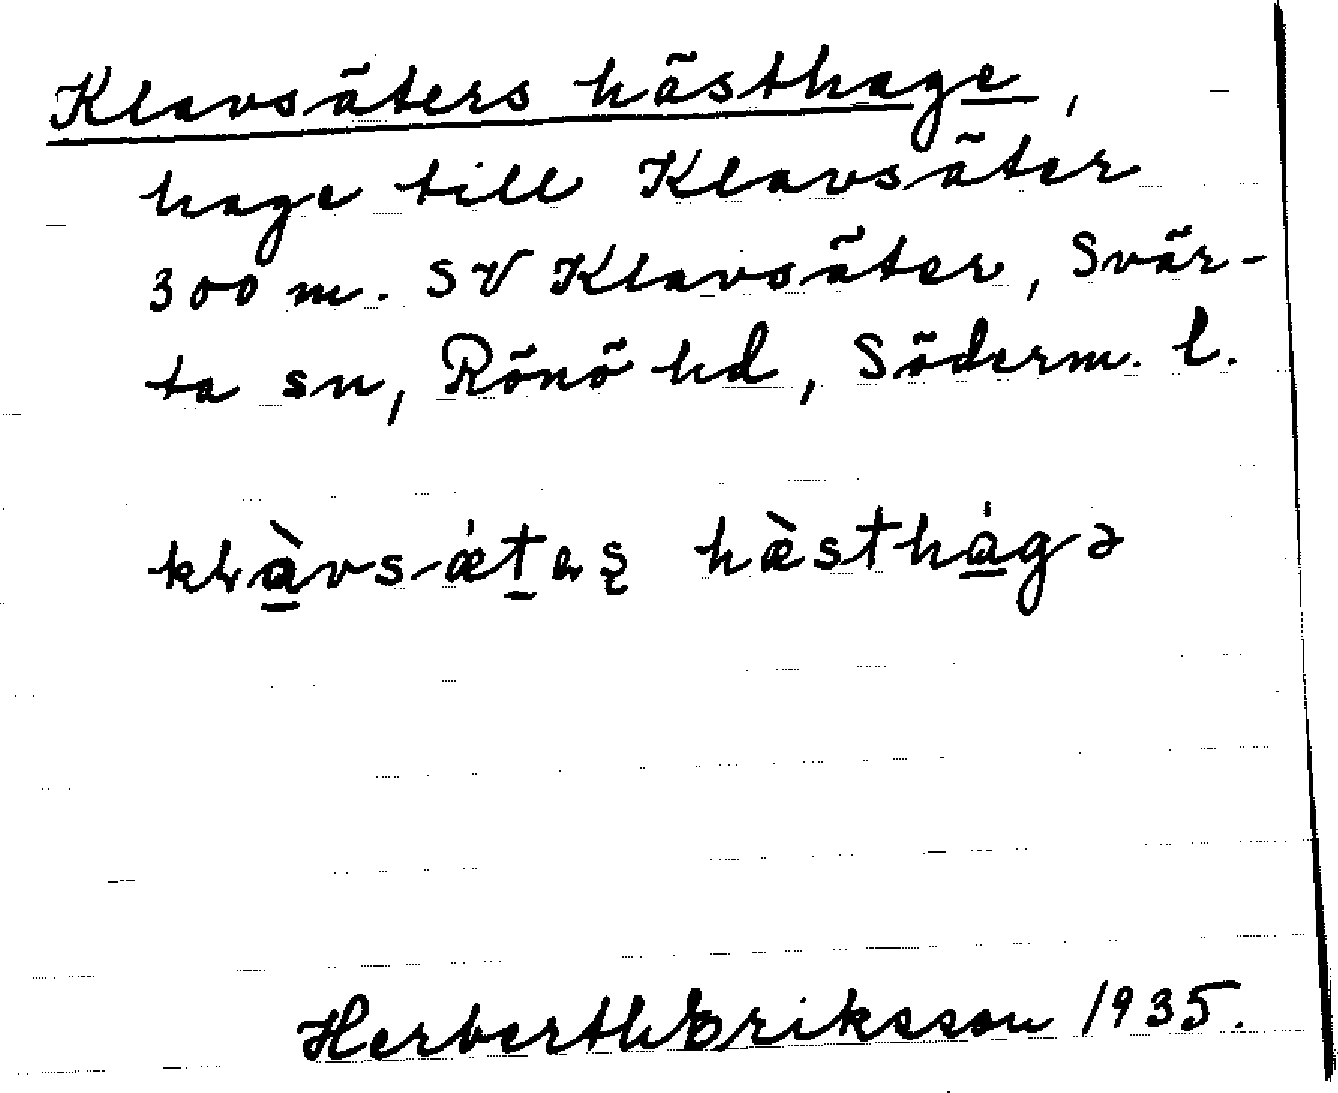 Klavsäters hästhage,
hage till Klavsäter
300 m. SV Klavsäter, Svär-
ta sn, Rönö hd, Söderm. l.
hæ̀sthág̀ə
Herberth Eriksson 1935.